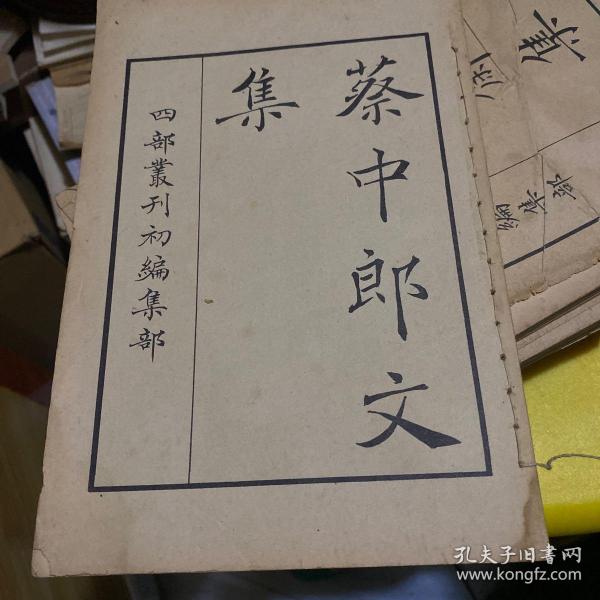 蔡中郎文
集
四部叢刊初編集部
集
編集部
孔夫子旧书网
www.kongfz.com